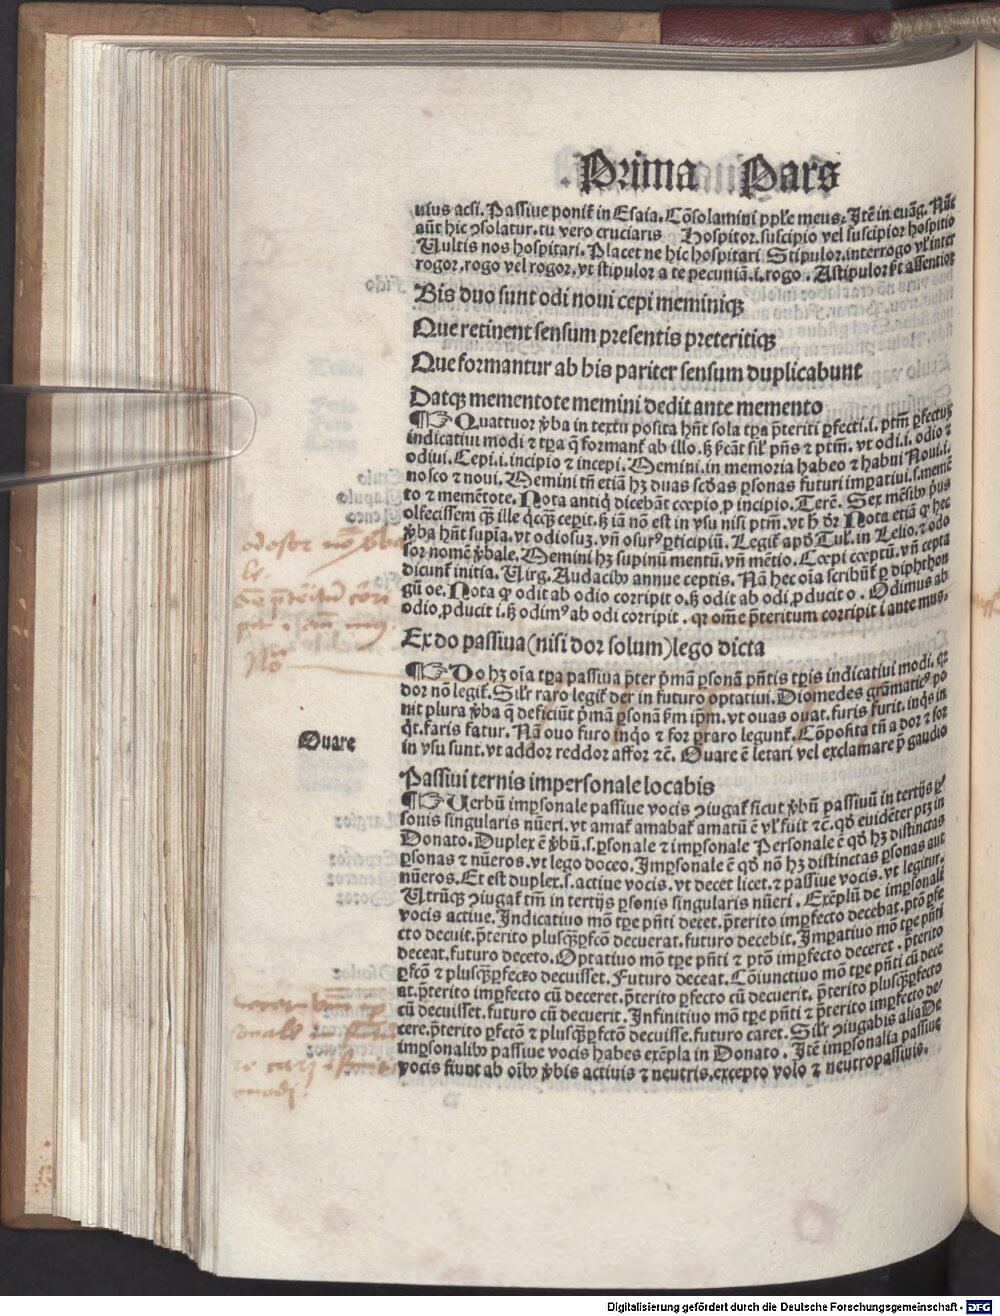 Prima Pars
uius acsi. Passiue ponit᷑ in Esaia. Cōsolamini pple meus. Itē in euāg. Nūc
aūt hic ↄsolatur. tu vero cruciaris Hospitor. suscipio vel suscipior hospitio
Uultis nos hospitari. Placet ne hic hospitari Stipulor. interrogo vl̓ inter
rogor. rogo vel rogor. vt stipulor a te pecuniā. i. rogo. Astipulor ē assentior
Bis duo sunt odi noui cepi meminiqꝫ
Que retinent sensum presentis preteritiqꝫ
Que formantur ab his pariter sensum duplicabunt
Datqꝫ mementote memini dedit ante memento
¶☞ Quattuor v̓ba in textu posita hn̄t sola tꝑa p̄teriti ꝑfecti. i. ptm̄ ꝑfectuꝫ
indicatiui modi ⁊ tꝑa q̄ formant᷑ ab illo. sꝫ sīcāt sil̓ pn̄s ⁊ ptm̄. vt odi. i. odio ⁊
odiui. Cepi. i. incipio ⁊ incepi. Memini. in memoria habeo ⁊ habui Noui. i.
nosco ⁊ noui. Memini tn̄ etiā hꝫ duas scd̓as ꝑsonas futuri imꝑatiui. s. memē
to ⁊ memētote. Nota antiq̇ dicebāt cœpio ꝓ incipio. Terē. Sex mēsibꝰ p̓us
olfecissem qꝫ̄ ille q̇cqꝫ cepit. sꝫ iā nō est in vsu nisi ptm̄. vt h̄ dr̄ Nota etiā ꝙ hec
v̓ba hn̄t supīa. vt odiosuꝫ. vn̄ osurꝰ ꝑticipiū. Legit᷑ apd̓ Tul. in Lelio. ⁊ odo
sor nomē v̓bale. Memini hꝫ supinū mentū. vn̄ mētio. Cœpi cœptū. vn̄ cepta
dicunt᷑ initia. Uirg. Audacibꝰ annue ceptis. Nā hec oīa scribūt᷑ ꝑ diphthon
gū oe. Nota ꝙ odit ab odio corripit o. sꝫ odit ab odi ꝓducit o. Odimus ab
odio. ꝓducit i. sꝫ odimꝰ ab odi corripit. qr om̄e p̄teritum corripit i ante mus.
Ex do passiua (nisi dor solum) lego dicta
¶☞ Do hꝫ oīa tꝑa passiua p̄ter p̓mā ꝑsonā pn̄tis tꝑis indicatiui modi. qꝛ
dor nō legit᷑. Silr̄ raro legit᷑ der in futuro optatiui. Diomedes grāmaticꝰ po
nit plura v̓ba q̄ deficiūt p̓mā ꝑsonā sm̄ ip̄m. vt ouas ouat. furis furit. inqͥs in
qͥt. faris fatur. Nā ouo furo inq̇o ⁊ for ꝑraro legunt᷑. Cōposita tn̄ a dor ⁊ for
in vsu sunt. vt addor reddor affor ⁊c̄. Ouare ē letari vel exclamare p̄ gaudio
Ouare
Passiui ternis impersonale locabis
¶☞ Uerbū imꝑsonale passiue vocis ↄiugat᷑ sicut v̓bū passiuū in tertijs ꝑ
sonis singularis nūeri. vt amat᷑ amabat᷑ amatū ē vl̓ fuit ⁊c̄. qd̓ euidēter ptꝫ in
Donato. Duplex ē v̓bū. s. ꝑsonale ⁊ imꝑsonale Personale ē qd̓ hꝫ distinctas
ꝑsonas ⁊ nūeros. vt lego doceo. Imꝑsonale ē qd̓ nō hꝫ distinctas ꝑsonas aut
nūeros. Et est duplex. s. actiue vocis. vt decet licet. ⁊ passiue vocis. vt legitur.
Utrūqꝫ ↄiugat᷑ tm̄ in tertijs ꝑsonis singularis nūeri. Exēplū de imꝑsonali
vocis actiue. Indicatiuo mō tꝑe pn̄ti decet. p̄terito imꝑfecto decebat. ptō ꝑfe
cto decuit. p̄terito plusqꝫ̄ꝑfcō decuerat. futuro decebit. Imꝑatiuo mō tꝑe pn̄ti
deceat. futuro deceto. Optatiuo mō tꝑe pn̄ti ⁊ ptō imꝑfecto deceret. p̄terito
ꝑfcō ⁊ plusqꝫ̄ꝑfecto decuisset. Futuro deceat. Cōiunctiuo mō tꝑe pn̄ti cū dece
at. p̄terito imꝑfecto cū deceret. p̄terito ꝑfecto cū decuerit. p̄terito plusqꝫ̄ꝑfecto
cū decuisset. futuro cū decuerit. Infinitiuo mō tꝑe pn̄ti ⁊ p̄terito imꝑfecto de
cere. p̄terito ꝑfctō ⁊ plusqꝫ̄ꝑfctō decuisse. futuro caret. Silr̄ ↄiugabis alia De
imꝑsonalibꝰ passiue vocis habes exēpla in Donato. Itē imꝑsonalia passiue
vocis fiunt ab oībꝰ v̓bis actiuis ⁊ neutris. excepto volo ⁊ neutropassiuis.
Digitalisierung gefördert durch die Deutsche Forschungsgemeinschaft - DFG